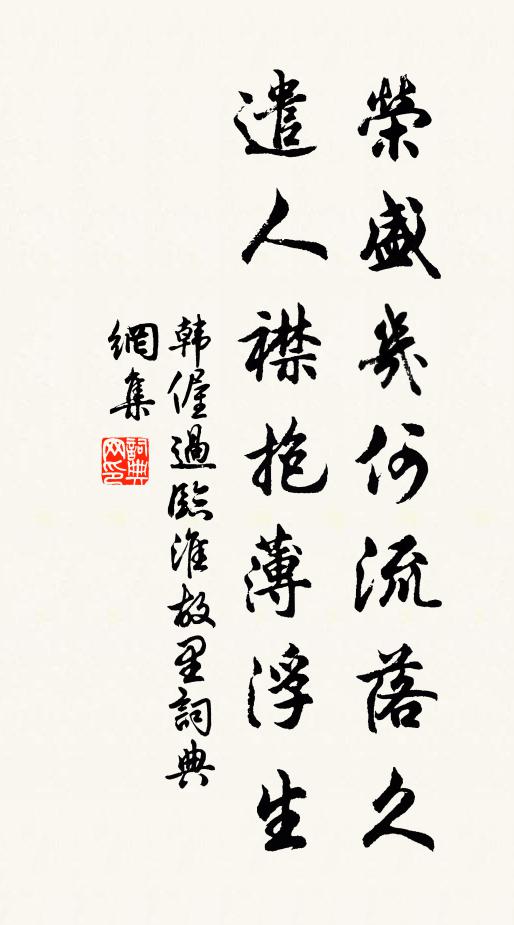 榮盛幾何流落久
遣人襟抱薄浮生
韩偓過臨淮故里詞典
網集
詞典网印